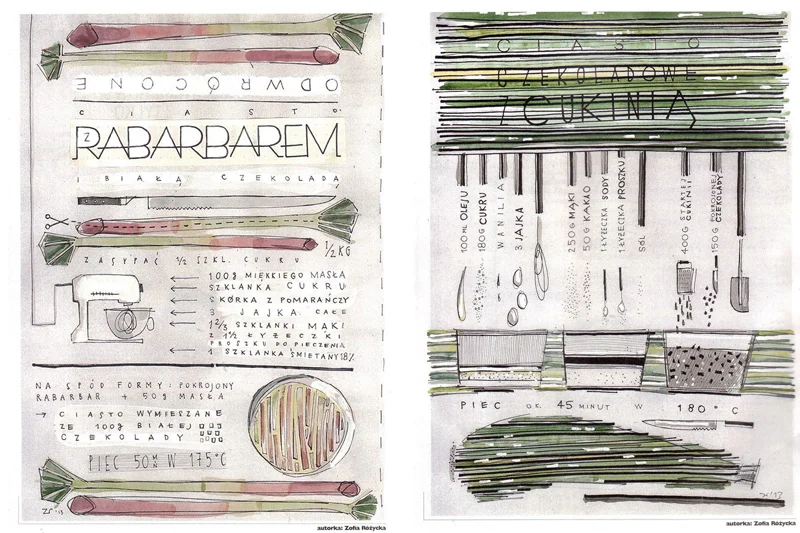 ODWRÓCONE
CIASTO
Z RABARBAREM
I BIAŁĄ CZEKOLADĄ
1/2 KG
ZASYPAĆ 1/2 SZKL. CUKRU
100g MIĘKKIEGO MASŁA
SZKLANKA CUKRU
SKÓRKA Z POMARAŃCZY
3 JAJKA CAŁE
1 2/3 SZKLANKI MĄKI
Z 1 1/2 ŁYŻECZKI
PROSZKU DO PIECZENIA
1 SZKLANKA ŚMIETANY 18%
NA SPÓD FORMY: POKROJONY
RABARBAR + 50g MASŁA
→ CIASTO WYMIESZANE
ZE 100g BIAŁEJ
CZEKOLADY
PIEC 50 MIN W 175°C
ZR '13
autorka: Zofia Różycka
CIASTO
CZEKOLADOWE
Z CUKINIĄ
100 ML OLEJU
180g CUKRU
WANILIA
3 JAJKA
250g MĄKI
50g KAKAO
1 ŁYŻECZKA SODY
1 ŁYŻECZKA PROSZKU
SÓL
400g STARTEJ CUKINII
150g POKROJONEJ CZEKOLADY
PIEC OK. 45 MINUT W 180°C
autorka: Zofia Różycka